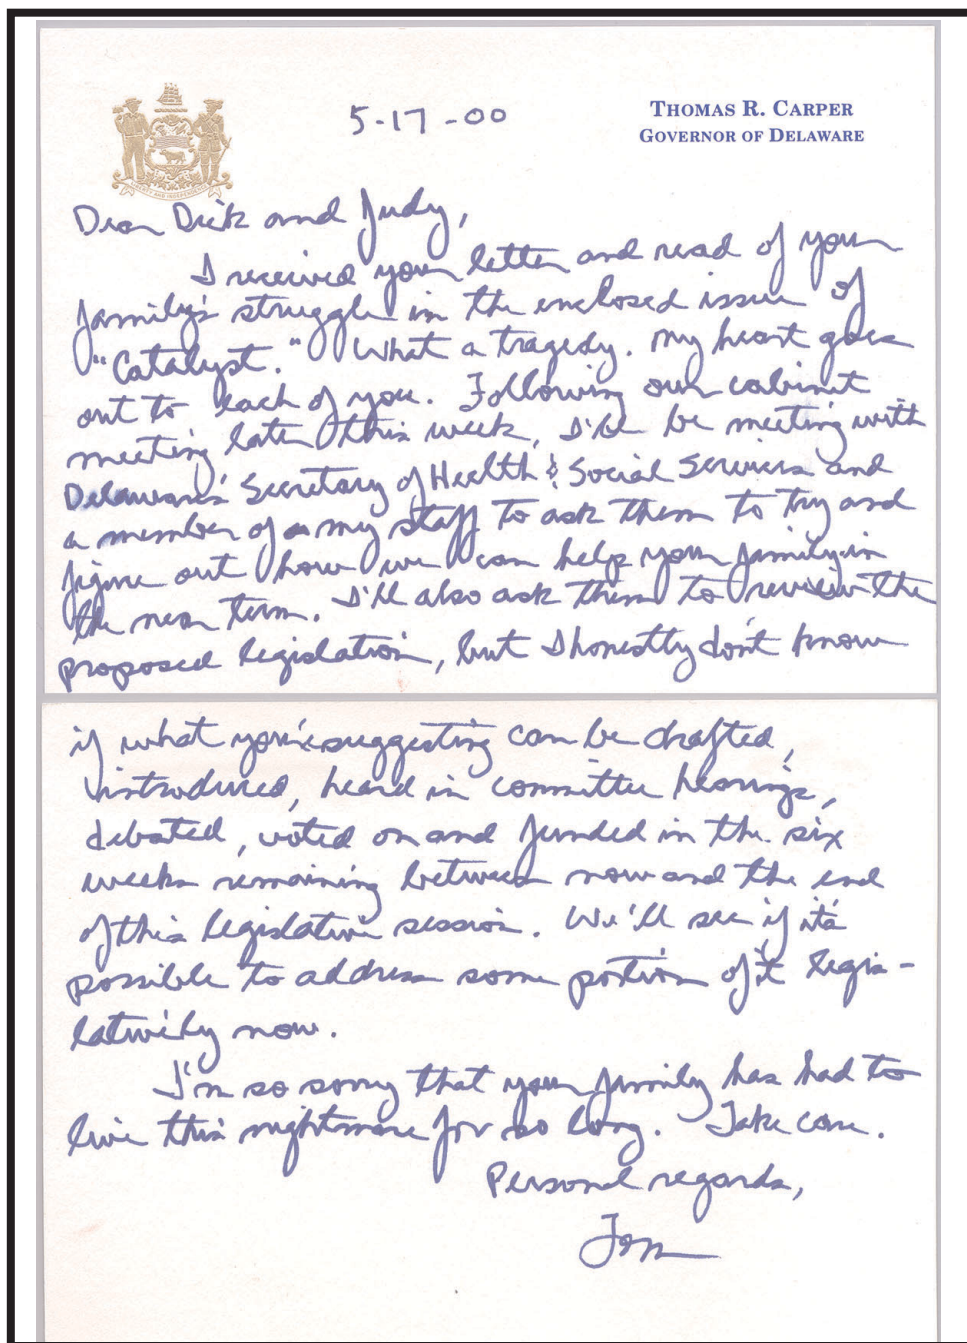 5-17-00
THOMAS R. CARPER
GOVERNOR OF DELAWARE
LIBERTY AND INDEPENDENCE
Dear Dick and Judy,
I received your letter and read of your
family's struggle in the enclosed issue of
"Catalyst." What a tragedy. My heart goes
out to each of you. Following our cabinet
meeting later this week, I'll be meeting with
Delaware's Secretary of Health & Social Services and
a member of my staff to ask them to try and
figure out how we can help your family in
the near term. I'll also ask them to review the
proposed legislation, but I honestly don't know
if what you're suggesting can be drafted,
introduced, heard in committee hearings,
debated, voted on and funded in the six
weeks remaining between now and the end
of this legislative session. We'll see if it's
possible to address some portion of it legis-
latively now.
I'm so sorry that your family has had to
live this nightmare for so long. Take care.
Personal regards,
Tom